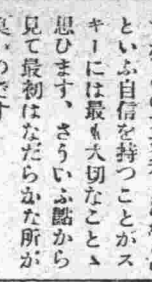 といふ自信を持つことがス
キーには最も大切なことゝ
思ひます、さういふ點から
見て最初はなだらかな所が
良いのです